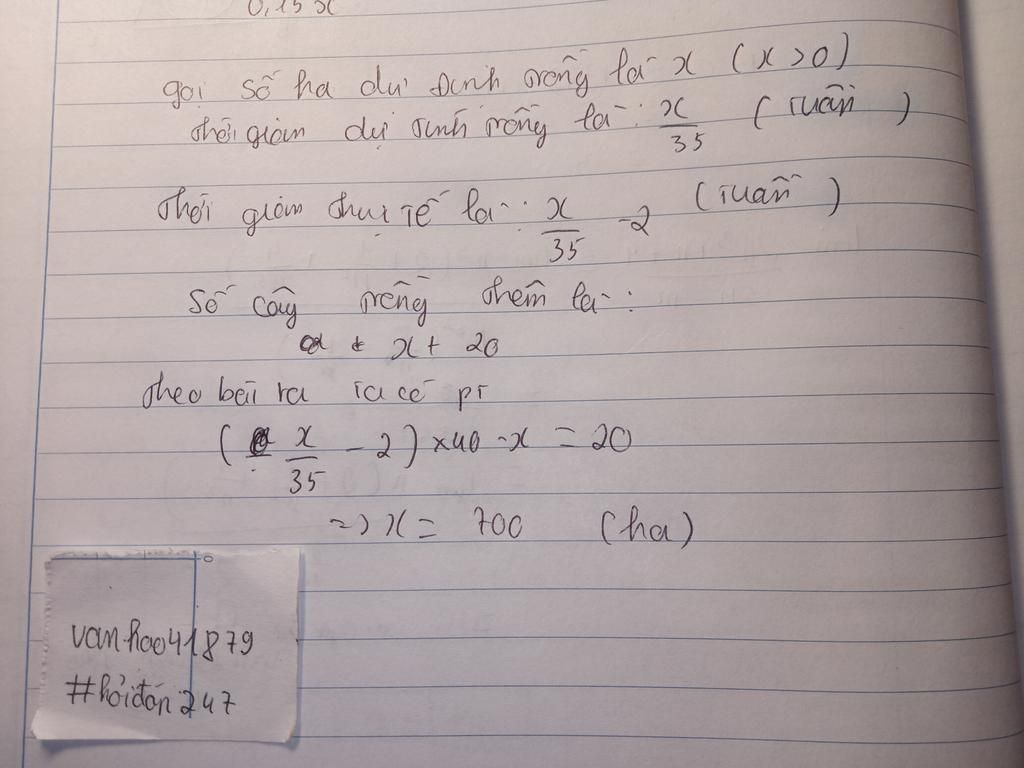 0,15x
gọi số ha dự định trồng là x (x>0)
thời gian dự định trồng là: x/35 (tuần)
thời gian thực tế là: x/35 -2 (tuần)
Số cây trồng thêm là:
x + 20
theo bài ra ta có pt
(x/35 - 2) × 40 - x = 20
=> x = 700 (ha)
vanhao41879
#hỏiđáp247